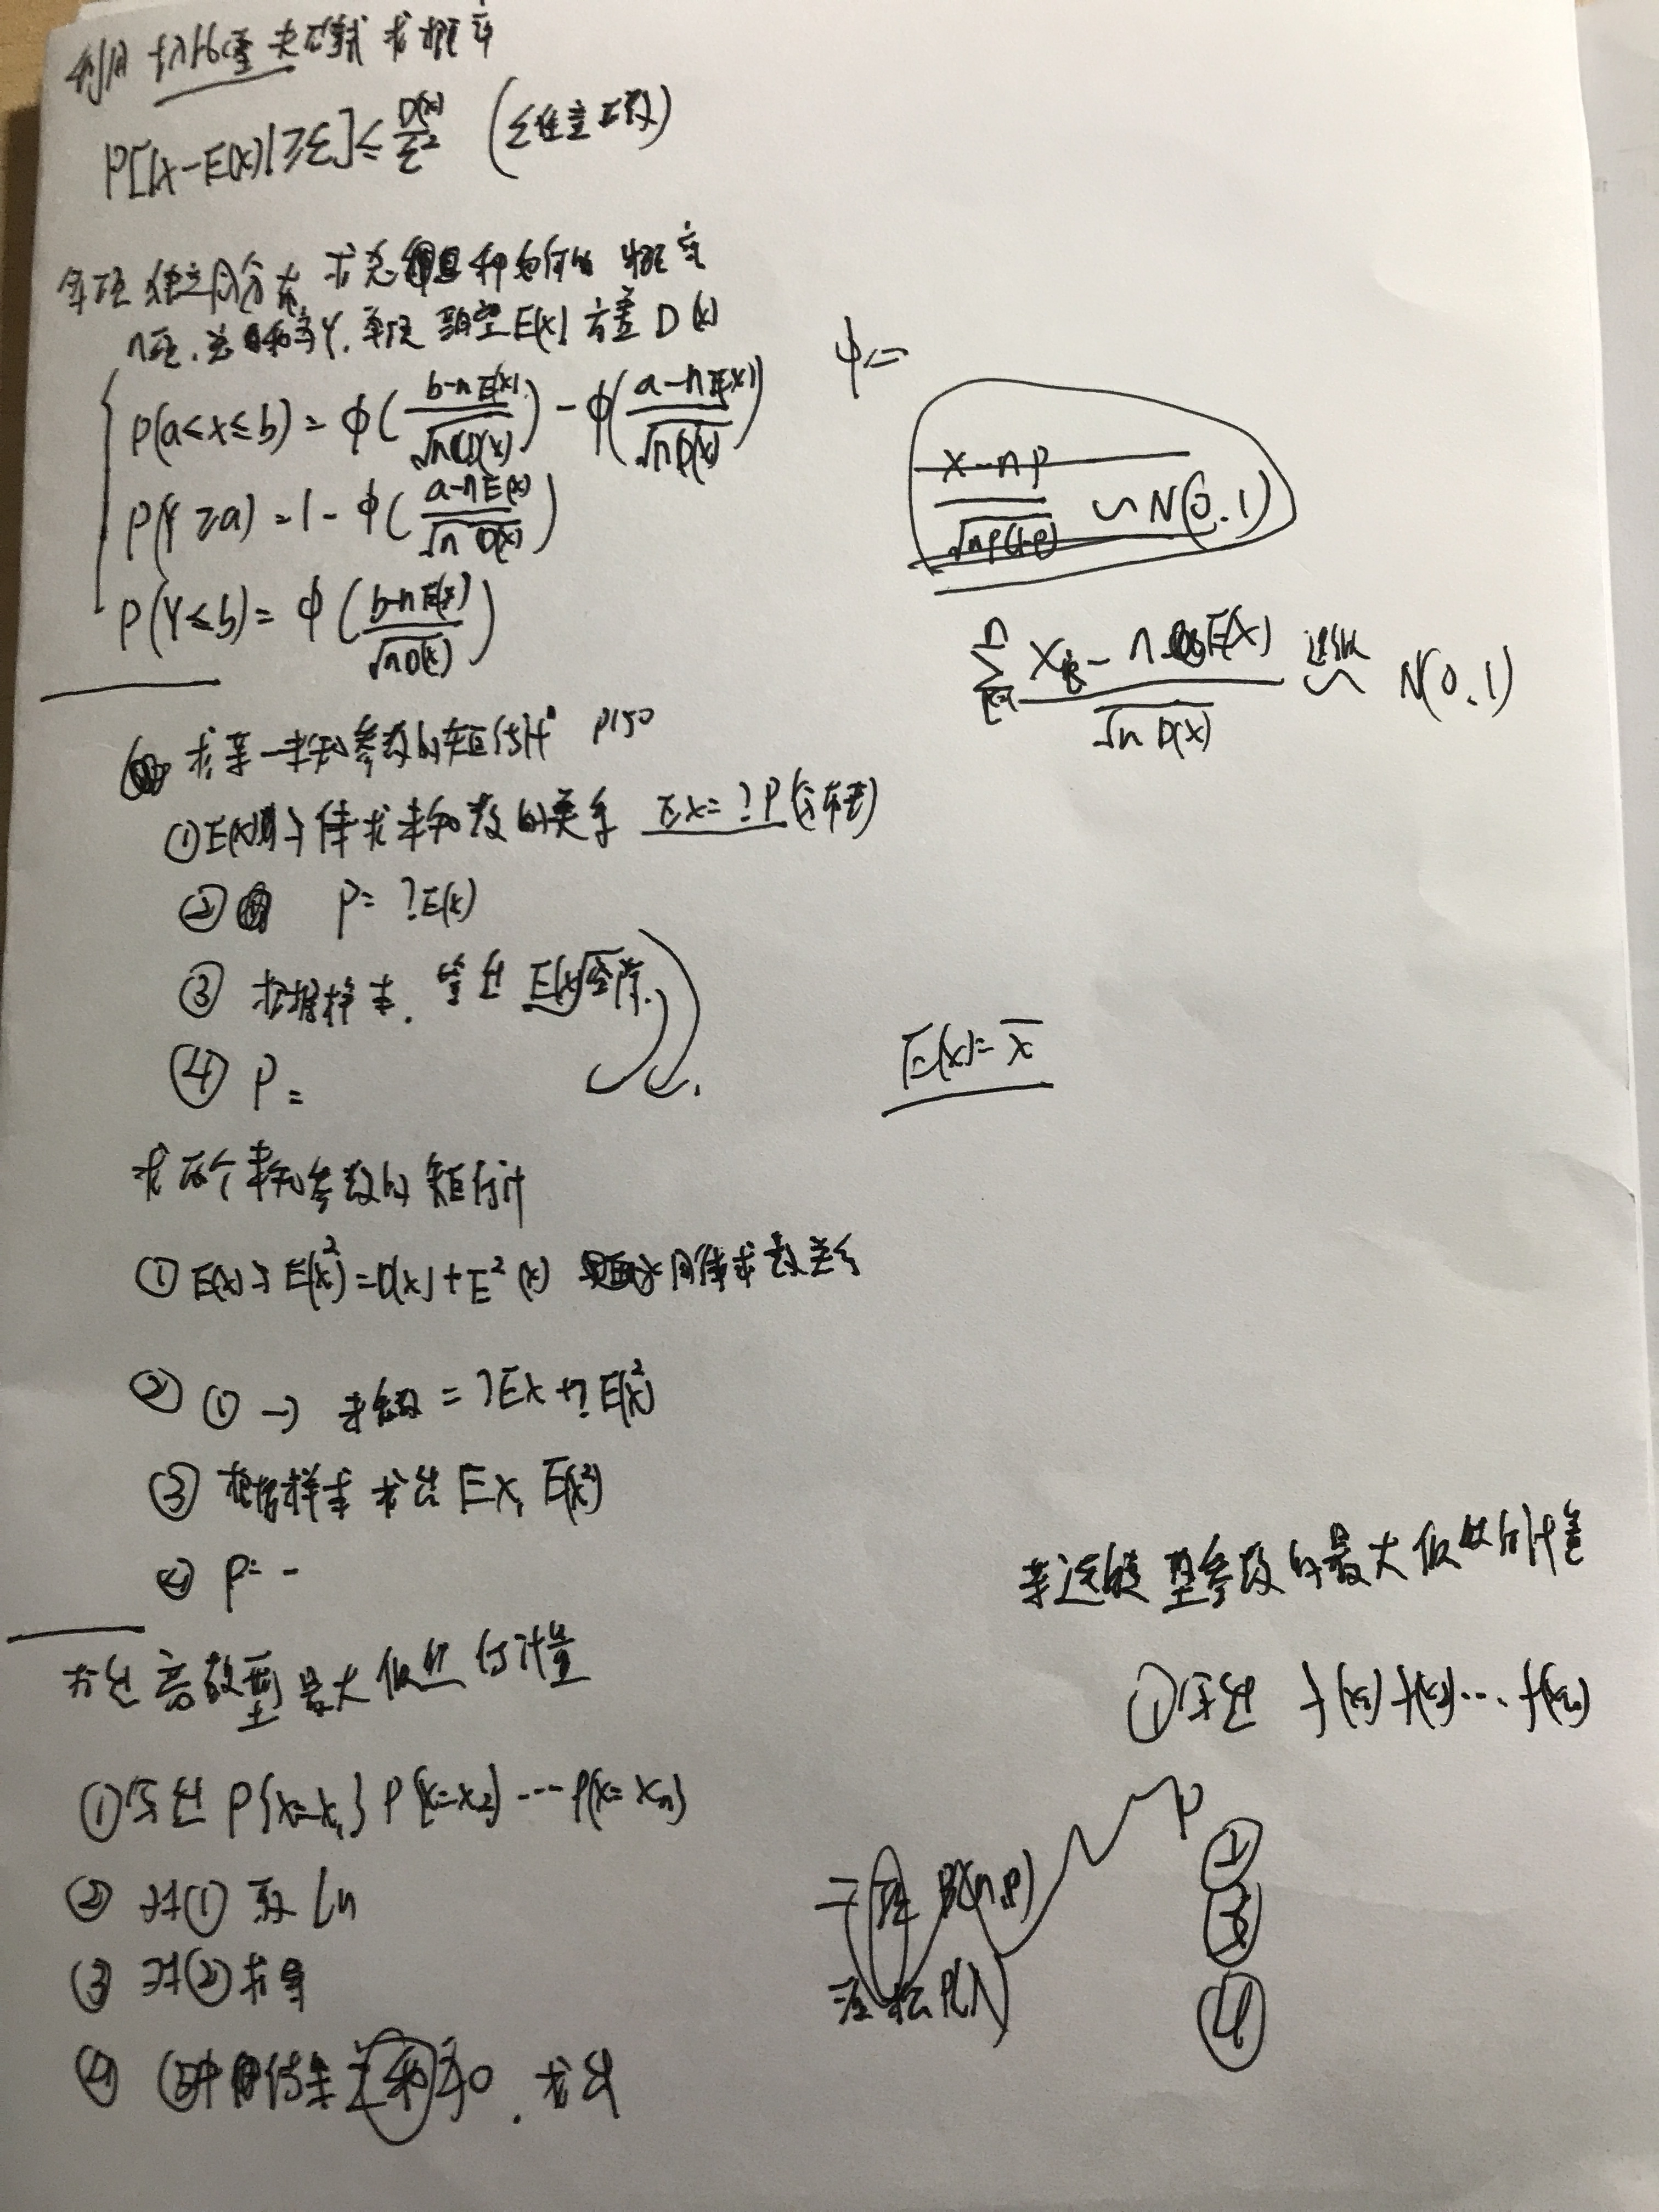 利用切比雪夫不等式求概率
P[|X-E(X)|≥ε]≤D(X)/ε² (ε任意正数)
单项独立同分布 求总和 的概率
n项.总和为Y.单项期望E(X) 方差D(X)
P(a<x≤b)=φ((b-nE(X))/√nD(X))-φ((a-nE(X))/√nD(X))
P(Y≥a)=1-φ((a-nE(X))/√nD(X))
P(Y≤b)=φ((b-nE(X))/√nD(X))
φ=
(X-np)/√np(1-p) ~N(0.1)
∑ (Xk-nE(X))/√nD(X) 近似 ~ N(0.1)
求单一未知参数的矩估计 P150
①E(X)与待求未知数的关系 EX=?P(分布表)
② P=?E(X)
③ 根据样本.算出E(X)
④ P=
E(X)=x̄
求两个未知参数的矩估计
①E(X)与E(X²)=D(X)+E²(X) 同待求数关系
② ①→ 未知数=?EX+?E(X²)
③ 根据样本求出EX, E(X²)
④ P=-
求出离散型最大似然估计量
①写出P{X=x₁}P{X=x₂}···P(X=xₙ)
② 对①取ln
③ 对②求导
④ ③中 为0.求出
求连续型参数的最大似然估计量
①写出 f(x₁)f(x₂)···f(xₙ)
②
③
④
二项B(n,p)
P
泊松P(λ)